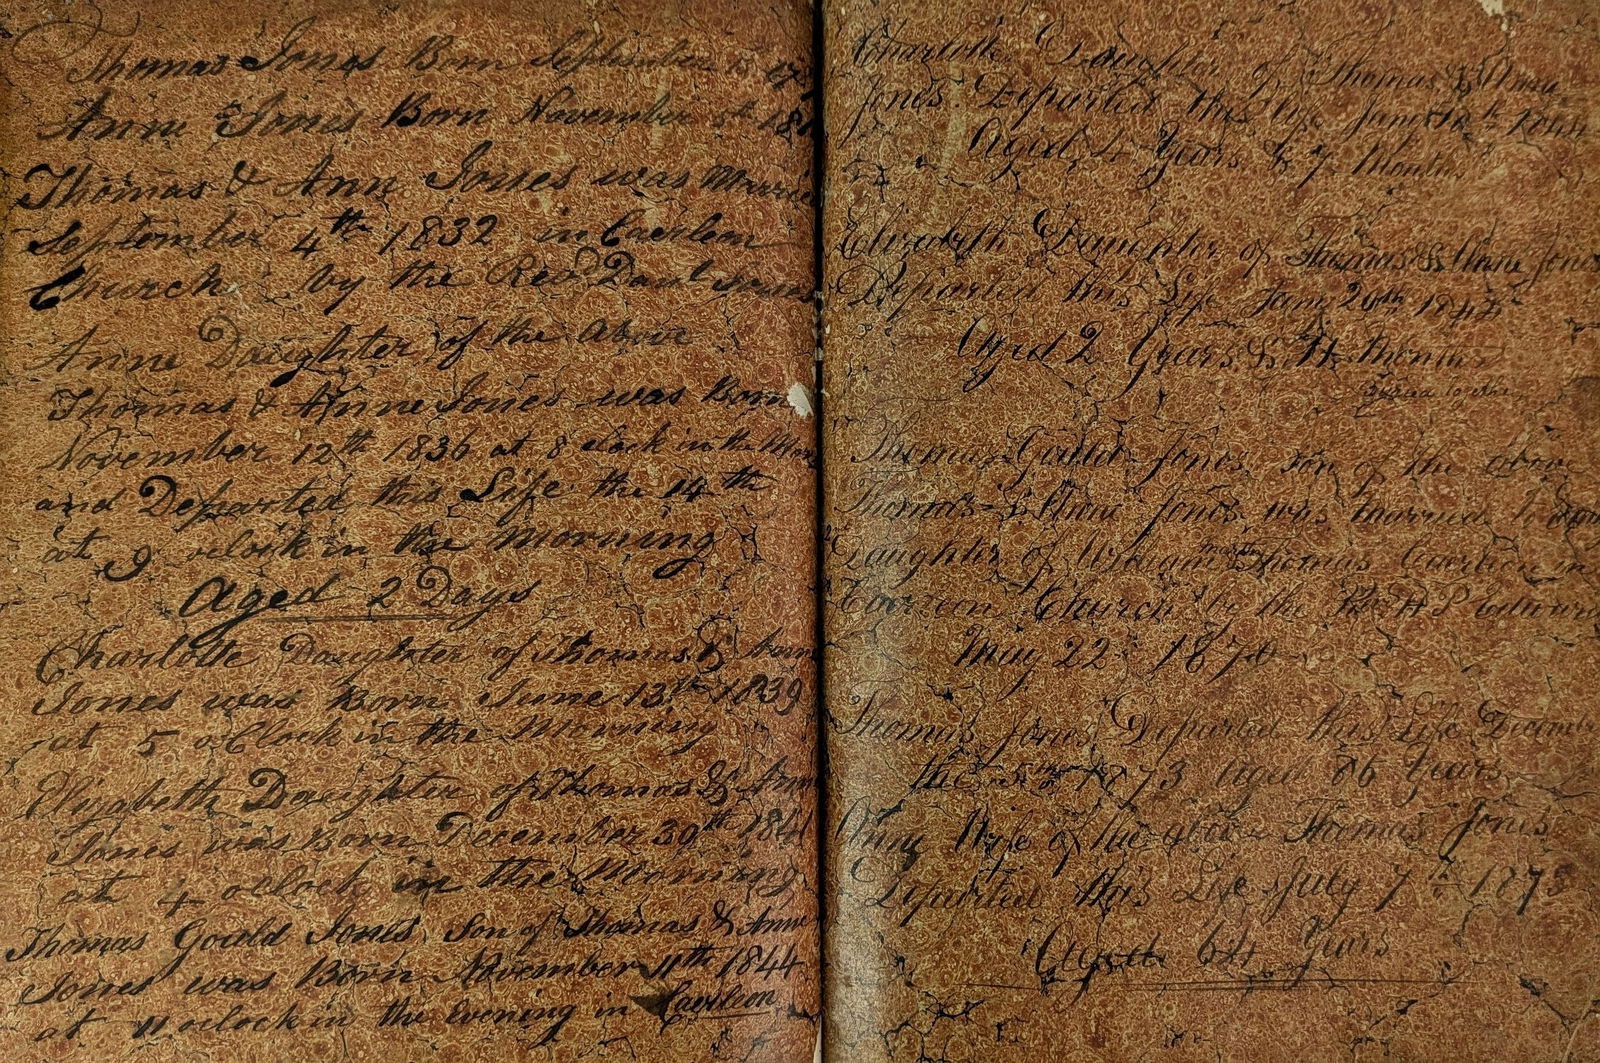 Thomas Jones Born September
Anne Jones Born November 5th
Thomas & Ann Jones was Married
September 4th 1832 in Caerleon
Church by the Revd Danl Jones
Anne Daughter of the above
Thomas & Anne Jones was Born
November 12th 1836 at 8 clock in the
and Departed this Life the 14th
at 9 oclock in the Morning
Aged 2 Days
Charlotte Daughter of Thomas & Anne
Jones was Born June 13th 1839
at 5 oClock in the Morning
Elizabeth Daughter of Thomas & Anne
Jones was Born December 30th 1841
at 4 oclock in the Morning
Thomas Gould Jones Son of Thomas & Anne
Jones was Born November 11th 1844
at 11 oclock in the Evening in Caerleon
Charlotte Daughter of Thomas & Anne
Jones Departed this Life 1844
Aged 4 Years & 7 Months
Elizabeth Daughter of Thomas & Anne Jones
Departed this Life 20th 1844
Aged 2 Years & Months
Thomas Gould Jones Son of the above
Thomas & Anne Jones was married to
Daughter of William Thomas Caerleon in
Church by the Rev H P Edwards
May 22 187
Thomas Jones Departed this Life December
the 1873 aged 86 Years
Wife of the above Thomas Jones
Departed this Life July 7th 1873
Aged 64 Years